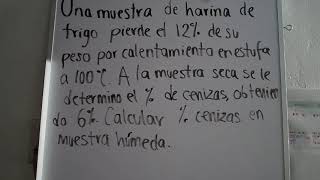 Una muestra de harina de
trigo pierde el 12% de su
peso por calentamiento en estufa
a 100°C. A la muestra seca se le
determino el % de cenizas, obtenien
do 6%. Calcular % cenizas en
muestra húmeda.